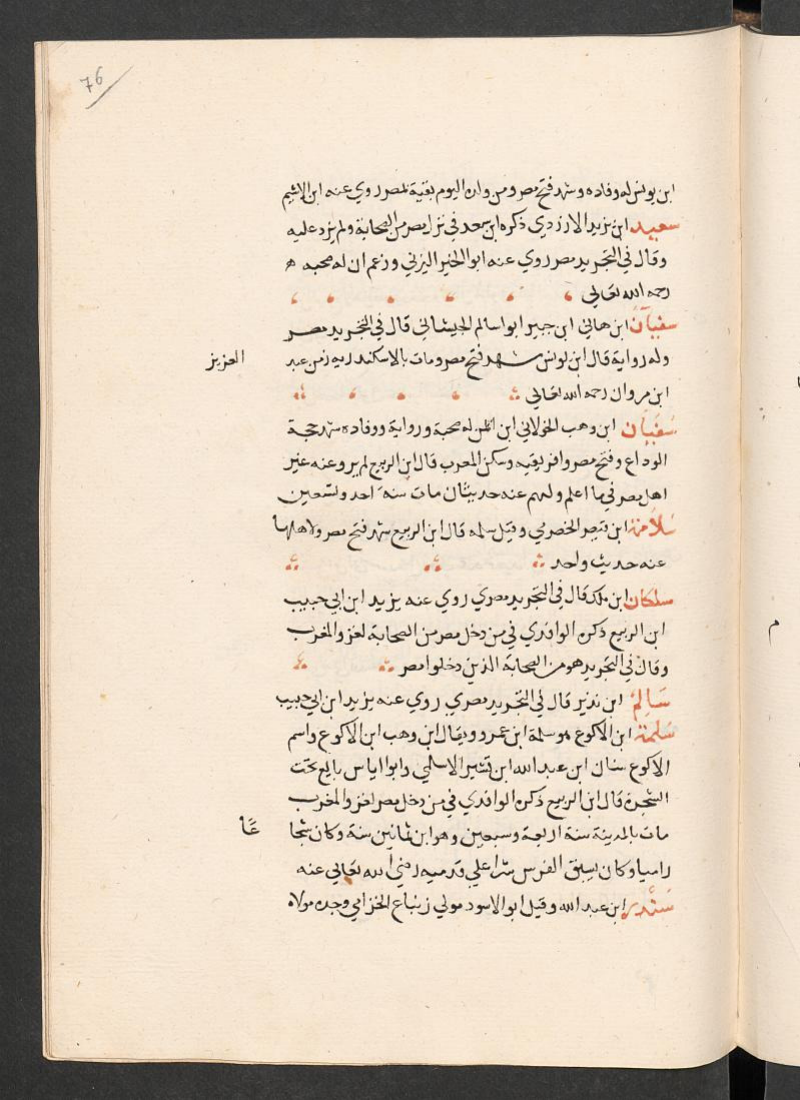 76
ابن يونس له وفاده وشهد فتح مصر ومن ولده اليوم بقية بمصر روي عنه ابن الاشيم
سعيد ابن يزيد الازردي ذكره ابن سعد في نزل مصر من الصحابة ولم يزد عليه
وقال في التجريد مصر روي عنه ابوا الخير اليزني وزعم ان له صحبه ه
رحمه الله تعالي
سفيان ابن هاني ابن جبير ابوا سالم الجيشاني قال في التجريد مصر
وله رواية قال ابن يونس شهد فتح مصر ومات بالاسكندريه زمن عبد العزيز
ابن مروان رحمه الله تعالي
سفيان ابن وهب الخولاني ابن له صحبة ورواية ووفاده شهد حجة
الوداع وفتح مصر وافريقيه وسكن المغرب قال ابن الربيع لم يرو عنه غير
اهل مصر في ما اعلم ولهم عنه حديثان مات سنة احد وتسعين
سلامة ابن قيصر الحضرمي وقيل سلمه قال ابن الربيع شهد فتح مصر ولاهلها
عنه حديث واحد
سلكان ابن ملك قال في التجريد مصري روي عنه يزيد ابن ابي حبيب
ابن الربيع ذكره الواقدي في من دخل مصر من الصحابة لغزو المغرب
وقال في التجريد هو من الصحابة الذين دخلوا مصر
سالم ابن نذير قال في التجريد مصري روي عنه يزيد ابن ابي حبيب
سلمة ابن الاكوع هو سلمة ابن عمرو ويقال ابن وهب ابن الاكوع واسم
الاكوع سنان ابن عبد الله ابن قشير الاسلمي وابوا اياس بايع تحت
الشجرة قال ابن الربيع ذكره الواقدي في من دخل مصر لغزو المغرب
مات بالمدينة سنة اربعة وسبعين وهو ابن ثمانين سنة وكان شجا عًا
راميا وكان يسبق الفرس شدا علي قدميه رضي الله تعالي عنه
سندر ابن عبد الله وقيل ابو الاسود مولي زنباع الخزامي وجده مولاه